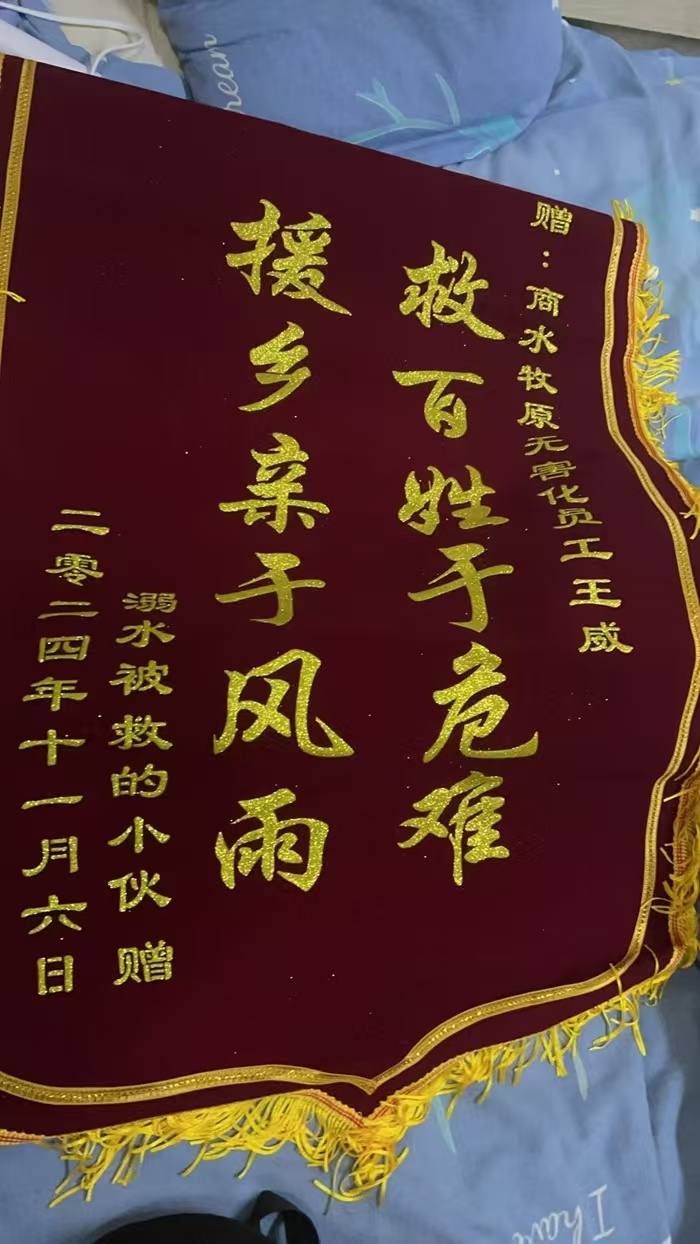 赠：商水牧原无害化员工王威
救百姓于危难
援乡亲于风雨
溺水被救的小伙 赠
二零二四年十一月六日
ream
I have